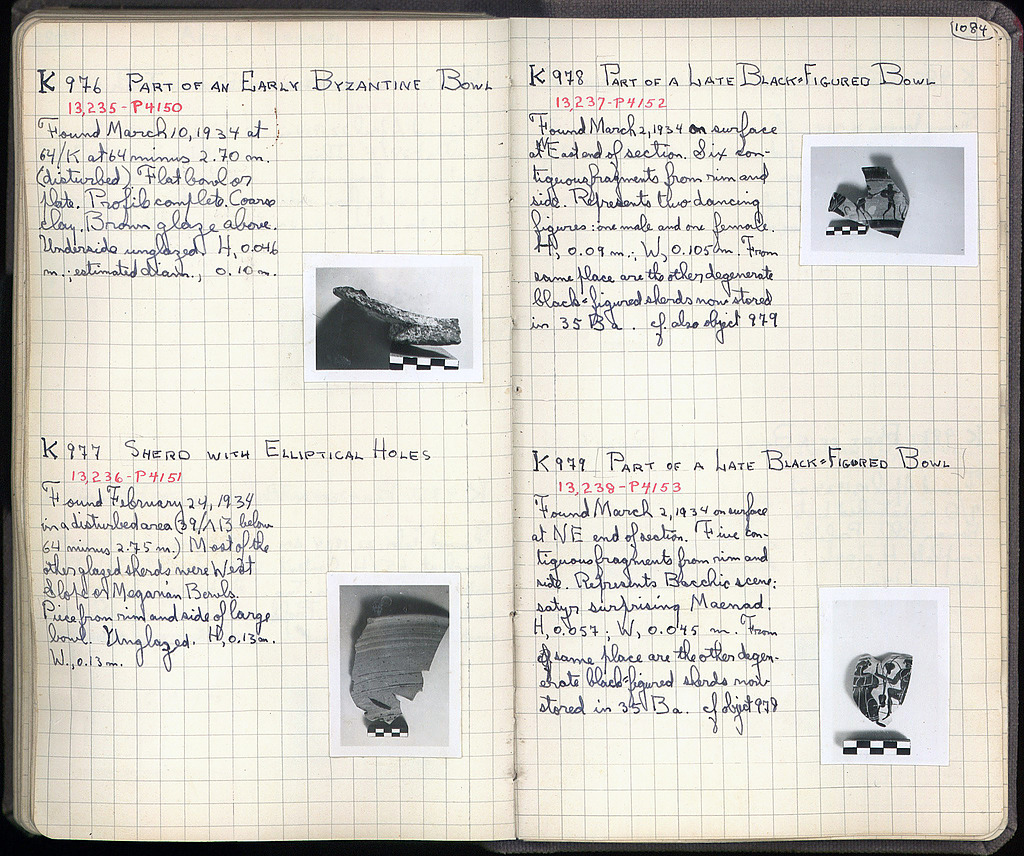 K 976 PART OF AN EARLY BYZANTINE BOWL
13,235-P4150
Found March 10, 1934 at
64/K at 64 minus 2.70 m.
(disturbed) Flat bowl or
plate. Profile complete. Coarse
clay. Brown glaze above.
Underside unglazed. H, 0.046
m.; estimated diam., 0.10 m.
K 977 SHERD WITH ELLIPTICAL HOLES
13,236-P4151
Found February 24, 1934
in a disturbed area (39/Λ13 below
64 minus 2.75 m.) Most of the
other glazed sherds were West
Slope or Megarian Bowls.
Piece from rim and side of large
bowl. Unglazed. H, 0.13 m.
W., 0.13 m.
1084
K 978 PART OF A LATE BLACK=FIGURED BOWL
13,237-P4152
Found March 2, 1934 on surface
at East end of section. Six con-
tiguous fragments from rim and
side. Represents two dancing
figures: one male and one female.
H, 0.09 m., W, 0.105 m. From
same place are the other degenerate
black=figured sherds now stored
in 35 Ba. cf. also object 979
K 979 PART OF A LATE BLACK=FIGURED BOWL
13,238-P4153
Found March 2, 1934 on surface
at NE end of section. Five con-
tiguous fragments from rim and
side. Represents Bacchic scene:
satyr surprising Maenad.
H, 0.057, W, 0.045 m. From
same place are the other degen-
erate black=figured sherds now
stored in 35 Ba. cf object 978